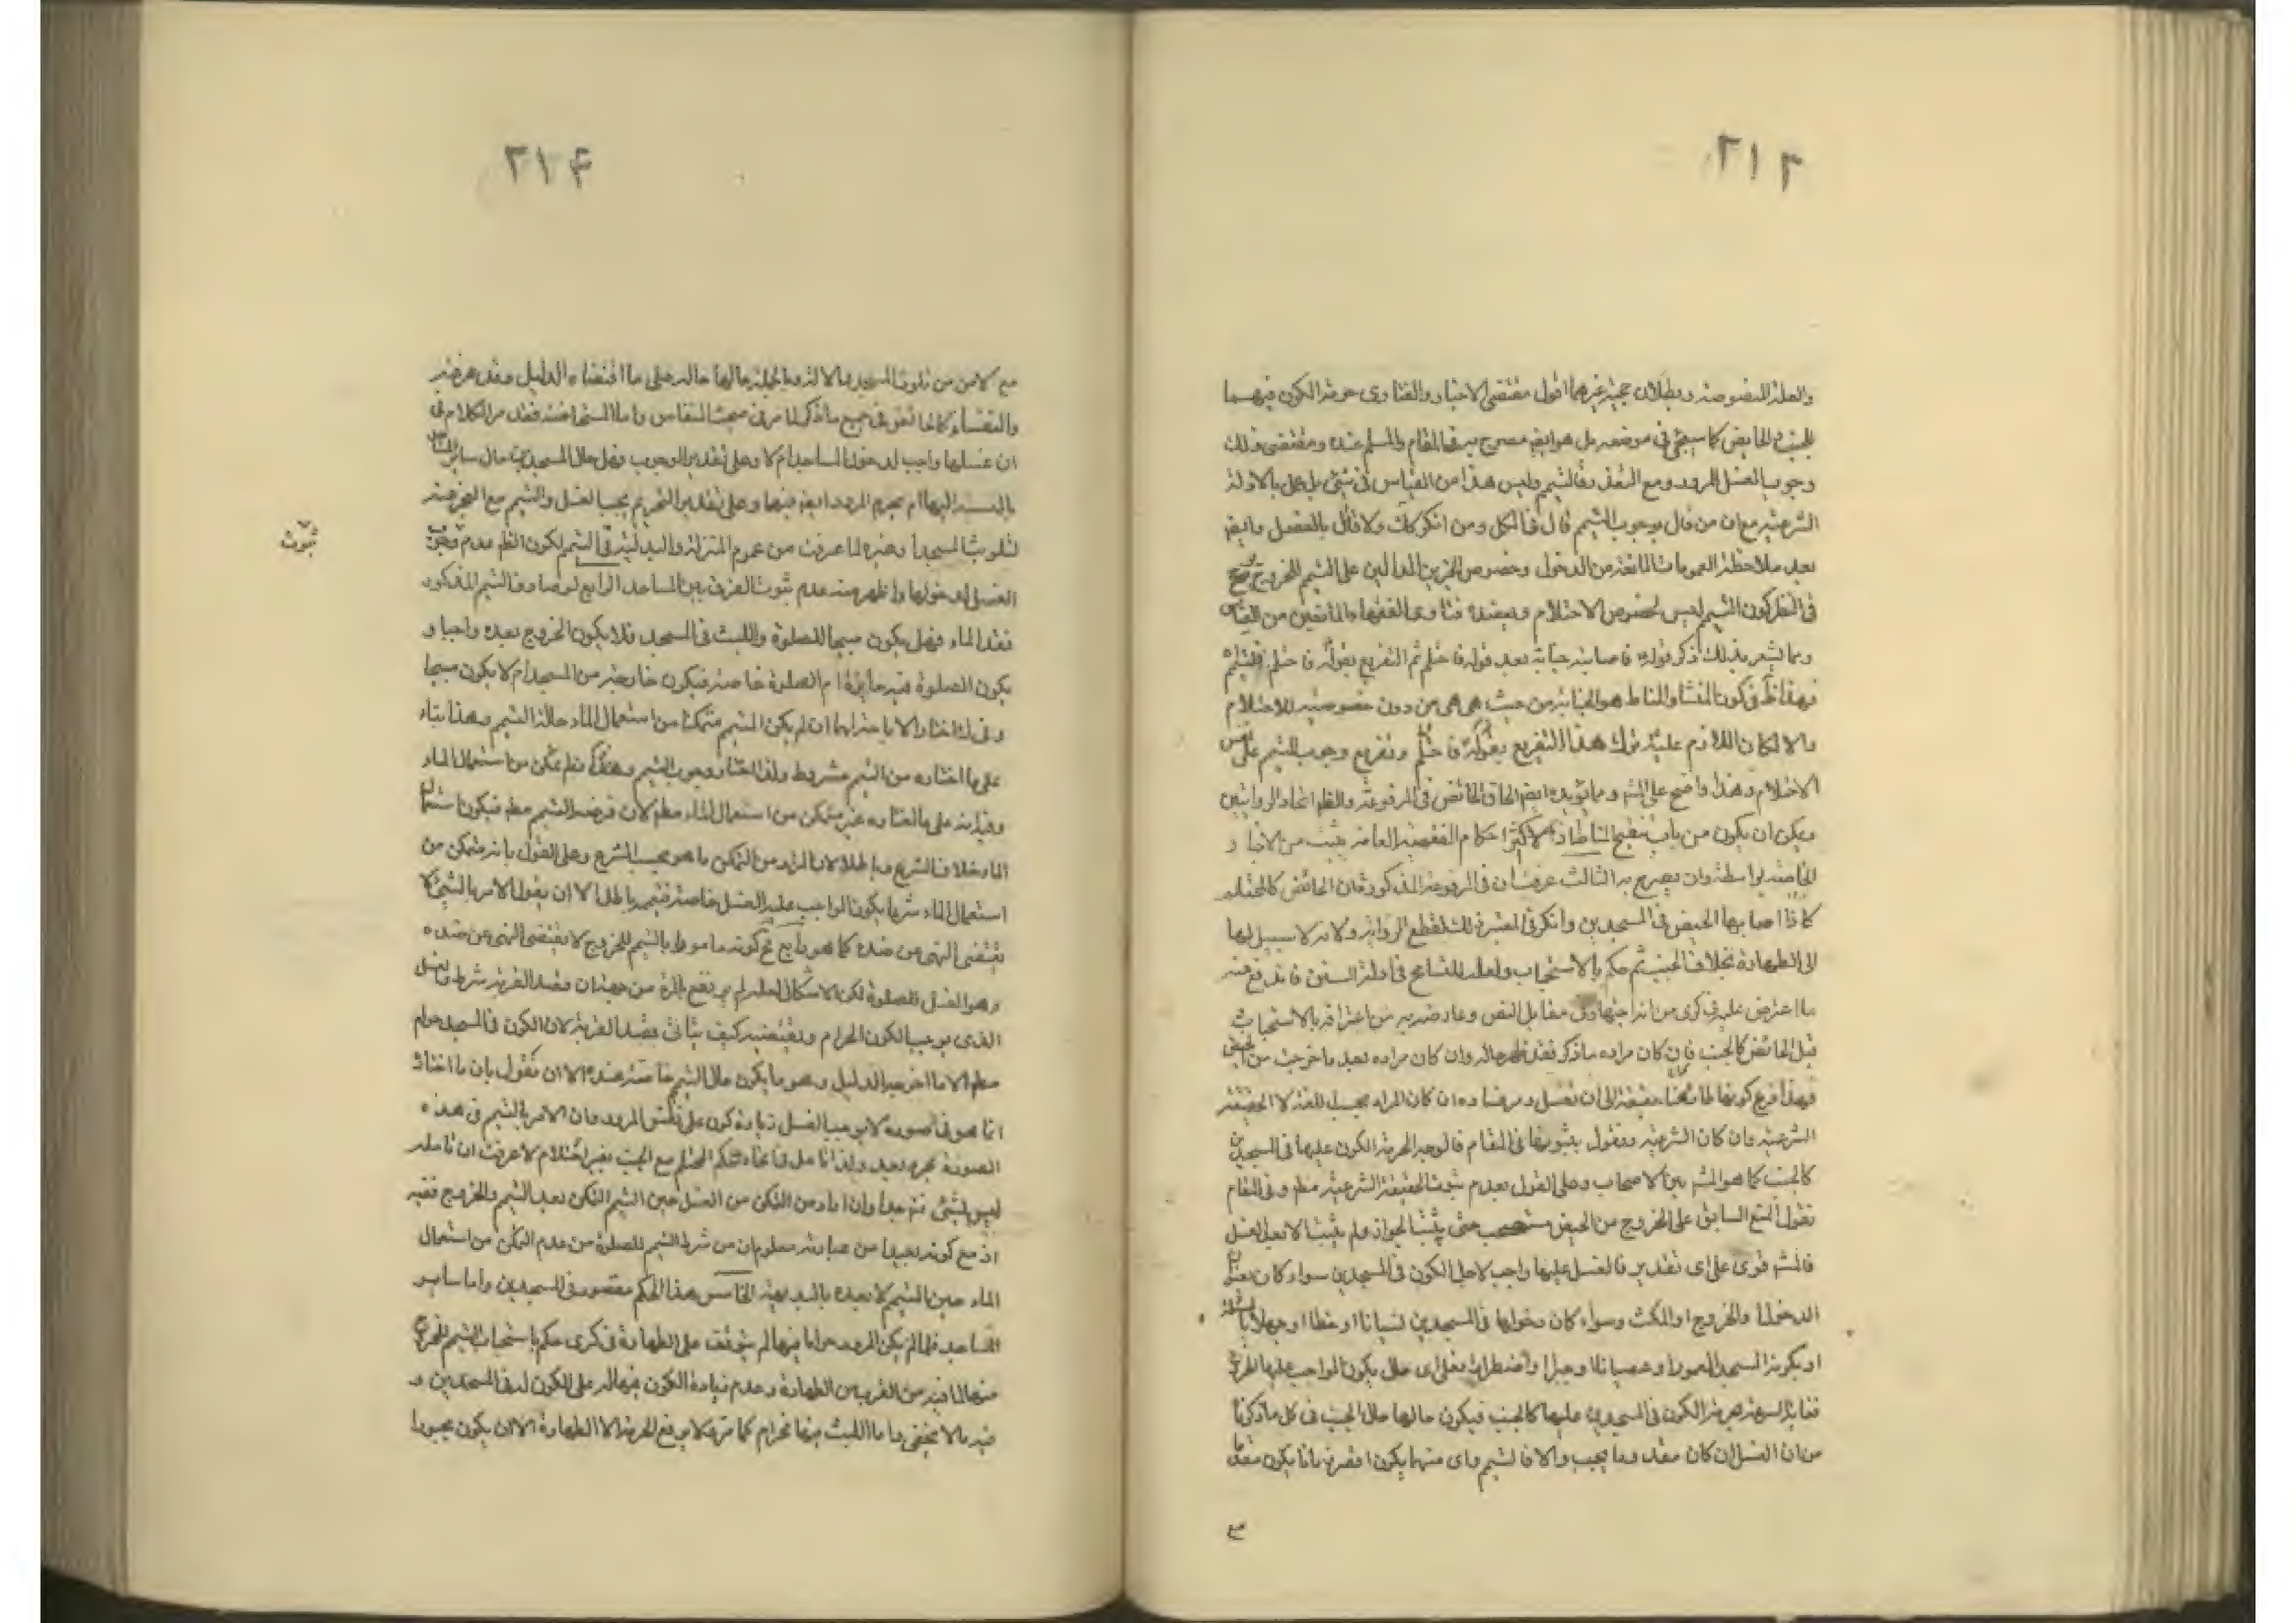 ٢١٢
والعلة المنصوصة وبطلان حجية غيرهما اقول مقتضى الاخبار والفتاوى حرمة الكون فيهما
للجنب والحايض كما سيجئ في موضعه بل هو ايضا مصرح به في المقام والمسلم عنده ومقتضى ذلك
وجوب الغسل للمرور ومع التعذر فالتيمم وليس هذا من القياس في شئ بل عمل بالادلة
الشرعية مع ان من قال بوجوب التيمم قال في الكل ومن انكر كك ولا قائل بالفصل وايض
بعد ملاحظة العمومات المانعة من الدخول وخصوص الخبرين الدالين على التيمم للخروج
في النظر كون التيمم ليس لخصوص الاحتلام ويعضده فتاوى الفقهاء المانعين من القياس
ومما يشعر بذلك ذكر قوله فاصابته جنابة بعد قوله فاحتلم ثم التفريع بقوله فاحتلم فليتيمم
فهذا ظ في كون المنشا والمناط هو الجنابة من حيث هي هي من دون خصوصية للاحتلام
والا لكان اللازم عليه ترك هذا التفريع بقوله فاحتلم وتفريع وجوب التيمم على نفس
الاحتلام وهذا واضح على المتم ومما يؤيده ايضا الحاق الحائض في المرفوعة والظم اتحاد الروايتين
ويمكن ان يكون من باب تنقيح المناط اذ اكثر احكام الفقهية العامة يثبت من الاخبار
الخاصة بواسطة وان يصرح به الثالث عرفت ان في المرفوعة المذكورة ان الحائض كالمحتلم
كما ذا اصابها الحيض في المسجدين وانكر في المعتبر ذلك لقطع الرواية ولانه لا سبيل لها
الى الطهارة بخلاف الجنب ثم حكم بالاستحباب ولعله للتسامح في ادلة السنن فاندفع عنه
ما اعترض عليه في كرى من انه اجتهاد في مقابل النص وعارضه به من اعترافه بالاستحباب
قبل الحائض كالجنب فان كان مراده ماذكر فقد ظهر حاله وان كان مراده بعد ما خرجت من الحيض
فهذا فرع كونها حائضا حقيقة الى ان تغتسل ومرضاده ان كان المراد بحسب اللغة لا الحقيقة
الشرعية وان كان الشرعية ونقول بثبوتها في المقام فالوجه الحرمة الكون عليها في المسجدين
كالجنب كما هو المتم بين الاصحاب وعلى القول بعدم ثبوت الحقيقة الشرعية مطم وفي المقام
نقول المنع السابق على الخروج من الحيض مستصحب حتى يثبت الجواز ولم يثبت الا بعد الغسل
فالمتم قوى على اى تقدير فالغسل عليها واجب لاجل الكون في المسجدين سواء كان بعنوان
الدخول او الخروج او المكث وسواء كان دخولها في المسجدين نسيانا او خطا او جهلا بالمسئلة
او بكونه المسجد المعهود او عصيانا او جبرا او اضطرارا فعلى اى حال يكون الواجب عليها الخروج
فغاية السرعة لحرمة الكون في المسجدين عليها كالجنب فيكون حالها حال الجنب في كل ماذكرنا
من ان الغسل ان كان مقدورا يجب والا فالتيمم واى منهما يكون اقصر زمانا يكون مقدما
مع
٢١۴
مع الامن من تلوث المسجد والا لزم وبالجملة حالها حاله على ما اقتضاه الدليل وقد عرفته
والنفساء كالحائض في جميع ماذكر لما مر في مبحث النفاس واما المستحاضة فقد مر الكلام في
ان غسلها واجب لدخول المساجد ام لا وعلى تقدير الوجوب فهل حال المسجدين حال سائر المساجد
بالنسبة اليها ام يحرم المرور ايضا فيها وعلى تقدير التحريم يجب الغسل والتيمم مع العجز عنه
لتلويث المسجد وغيره لما عرفت من عموم المنزلة والبدلية في التيمم لكون الظم عدم وجوب
ثبوت
الغسل لدخولها واظهر منه عدم ثبوت الفرق بين المساجد الرابع لو صادف التيمم المذكور
فقد الماء فهل يكون مبيحا للصلوة واللبث في المسجد فلا يكون الخروج بعده واجبا و
يكون الصلوة فيه جايزة ام الصلوة خاصة فيكون خارجة من المسجد ام لا يكون مبيحا
وفى لذا اختار الاباحة لها ان لم يكن المتيمم متمكنا من استعمال الماء حالة التيمم وهذا بناء
على ما اختاره من التيمم مشروط ولذا اختار وجوب التيمم وان لم يتمكن من استعمال الماء
وفيه انه على ما اختاره غير متمكن من استعمال الماء مطم لان فرضه التيمم مطم فيكون استعمال
الماء خلاف الشرع وباطلا لان المراد من التمكن ما هو بحسب الشرع وعلى القول بانه متمكن من
استعمال الماء شرعا يكون الواجب عليه الغسل خاصة فتيممه باطل الا ان يقول الامر بالشئ لا
يقتضى النهى عن ضده كما هو رايه مع كونه مامورا بالتيمم للخروج لا يقتضى النهى عن ضده
وهو الغسل للصلوة لكن الاشكال لعله لم يرتفع بالمرة من جهة ان قصد القربة شرط والغسل
الذى يوجب الكون الحرام ويقتضيه كيف يتاتى بقصد القربة لان الكون في المسجد حرام
مطم الا ما اخرجه الدليل وهو ما يكون حال التيمم خاصة عنده الا ان نقول بان ما اختار
انما هو في صورة لا يوجب الغسل زيادة كون على نفس المرور وان الامر بالتيمم في هذه
الصورة مجرد تعبد ولذا تامل في اتحاد حكم المحتلم مع الجنب بغير احتلام لا عرفت ان تامله
ليس بشئ فتم جدا وان اراد من التمكن من الغسل حين التيمم التمكن بعد التيمم والخروج ففيه
انه مع كونه بعيدا من عبارته معلوم ان من شرط التيمم للصلوة من عدم التمكن من استعمال
الماء حين التيمم لا بعده بالبديهة الخامس هذا الحكم مقصور في المسجدين واما ساير
المساجد فلما لم يكن المرور حراما فيها لم يتوقف على الطهارة في كرى حكم باستحباب التيمم للخروج
منها لما فيه من القرب من الطهارة وعدم زيادة الكون فيها له على الكون له في المسجدين و
فيه ما لا يخفى واما اللبث فيها فحرام كما مر فلا يرفع الحرمة الا الطهارة الا ان يكون مجبورا